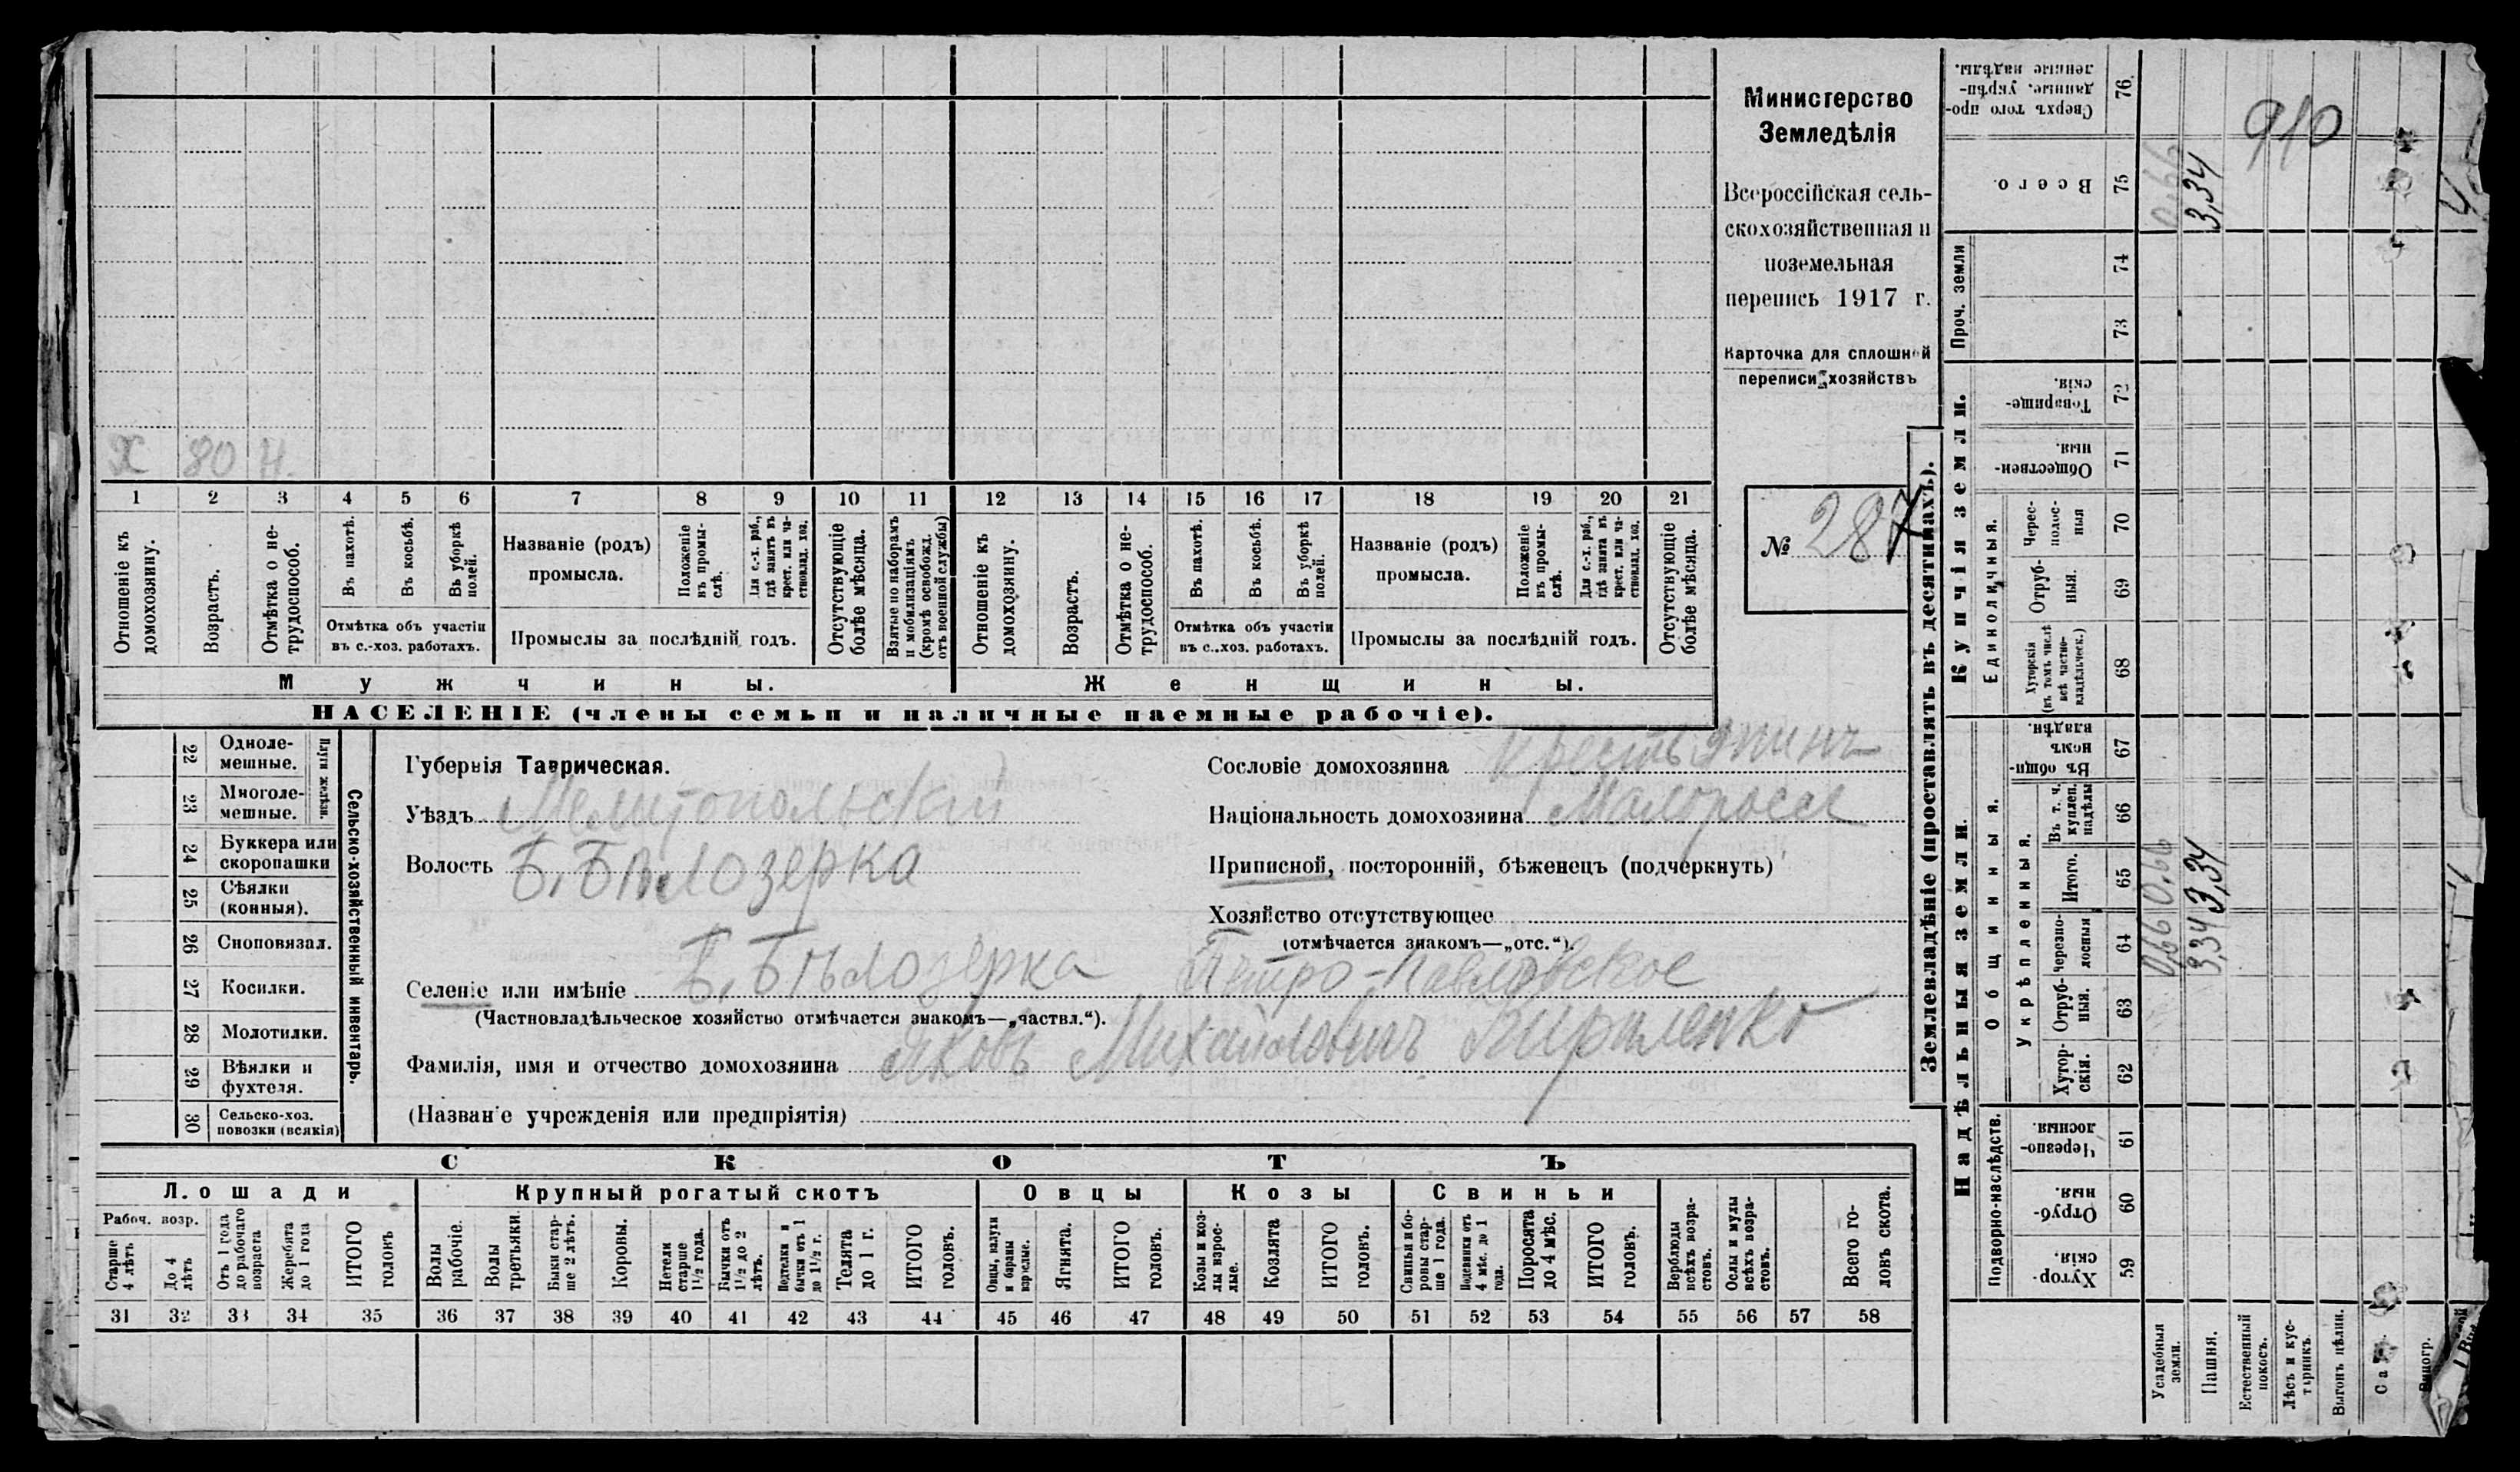 Х 80 Н.
1 2 3 4 5 6 7 8 9 10 11 12 13 14 15 16 17 18 19 20 21
Отношеніе къ домохозяину.
Возрастъ.
Отмѣтка о не-
трудоспособ.
Въ пахотѣ.
Въ косьбѣ.
Въ уборкѣ
полей.
Отмѣтка объ участіи
въ с.-хоз. работахъ.
Названіе (родъ)
промысла.
Положеніе
въ промы-
слѣ.
Для с.-х. раб.,
гдѣ занятъ въ
крест. или ча-
стновлад. хоз.
Промыслы за послѣдній годъ.
Отсутствующіе
болѣе мѣсяца.
Взятые по наборамъ
и мобилизаціямъ
(кромѣ освобожд.
отъ военной службы)
Отношеніе къ
домохозяину.
Возрастъ.
Отмѣтка о не-
трудоспособ.
Въ пахотѣ.
Въ косьбѣ.
Въ уборкѣ
полей.
Отмѣтка объ участіи
въ с..хоз. работахъ.
Названіе (родъ)
промысла.
Положеніе
въ промы-
слѣ.
Для с.-х. раб.,
гдѣ занята въ
крест. или ча-
стновлад. хоз.
Промыслы за послѣдній годъ.
Отсутствующіе
болѣе мѣсяца.
Мужчины.
Женщины.
НАСЕЛЕНІЕ (члены семьи и наличные наемные рабочіе).
Министерство
Земледѣлія
Всероссійская сель-
скохозяйственная и
поземельная
перепись 1917 г.
Карточка для сплошной
переписи хозяйствъ
№ 287
22 Одноле-
мешные.
23 Многоле-
мешные.
Плуги желѣзн.
24 Буккера или
скоропашки
25 Сѣялки
(конныя).
26 Сноповязал.
27 Косилки.
28 Молотилки.
29 Вѣялки и
фухтеля.
30 Сельско-хоз.
повозки (всякія)
Сельско-хозяйственный инвентарь.
Губернія Таврическая.
Уѣздъ Мелитопольскій
Волость Б. Бѣлозерка
Сословіе домохозяина крестьянинъ
Національность домохозяина Малороссъ
Приписной, посторонній, бѣженецъ (подчеркнуть)
Хозяйство отсутствующее
(отмѣчается знакомъ—„отс.“).
Селеніе или имѣніе Б. Бѣлозерка Петро-Павловское
(Частновладѣльческое хозяйство отмѣчается знакомъ—„частвл.“).
Фамилія, имя и отчество домохозяина Яковъ Михайловичъ
(Назван е учрежденія или предпріятія)
СКОТЪ
Лошади
Крупный рогатый скотъ
Овцы
Козы
Свиньи
Рабоч. возр.
Старше
4 лѣтъ
До 4
лѣтъ
Отъ 1 года
до рабочаго
возраста
Жеребята
до 1 года
ИТОГО
головъ
Волы
рабочіе.
Волы
третьяки.
Быки стар-
ше 2 лѣтъ.
Коровы.
Нетели
старше
1½ года.
Бычки отъ
1½ до 2
лѣтъ.
Подтелки и
бычки отъ 1
до 1½ г.
Телята
до 1 г.
ИТОГО
головъ.
Овцы, валухи
и бараны
взрослые.
Ягнята.
ИТОГО
головъ.
Козы и коз-
лы взрос-
лые.
Козлята
ИТОГО
головъ.
Свиньи и бо-
ровы стар-
ше 1 года.
Подсвинки отъ
4 мѣс. до 1
года.
Поросята
до 4 мѣс.
ИТОГО
головъ.
Верблюды
всѣхъ возра-
стовъ.
Ослы и мулы
всѣхъ возра-
стовъ.
Всего го-
ловъ скота.
31 32 33 34 35 36 37 38 39 40 41 42 43 44 45 46 47 48 49 50 51 52 53 54 55 56 57 58
Землевладѣніе (проставлять въ десятинахъ).
Надѣльныя земли.
Купчія земли.
Проч. земли
Подворно-наслѣдств.
Общинныя.
Укрѣпленныя.
Единоличныя.
Сверхъ того про-
данные, укрѣп-
ленные надѣлы.
76.
Всего.
75
74
73
Товарище-
скія.
72
Обществен-
ныя.
71
Черес-
полос-
ныя
70
Отруб-
ныя.
69
Хуторскія
(въ томъ числѣ
всѣ частно-
владѣльческ.)
68
Въ общин-
номъ
владѣн.
67
Въ т. ч.
куплен.
надѣлы
66
Итого.
65
Черезпо-
лосныя
64
Отруб-
ныя.
63
Хутор-
скія.
62
Черезпо-
лосныя.
61
Отруб-
ныя.
60
Хутор-
скія.
59
Усадебныя
земли.
0,66 0,66 0,66
Пашня.
3,34 3,34 3,34
Естественный
покосъ.
910
Лѣсъ и кус-
тарникъ.
Выгонъ цѣлин.